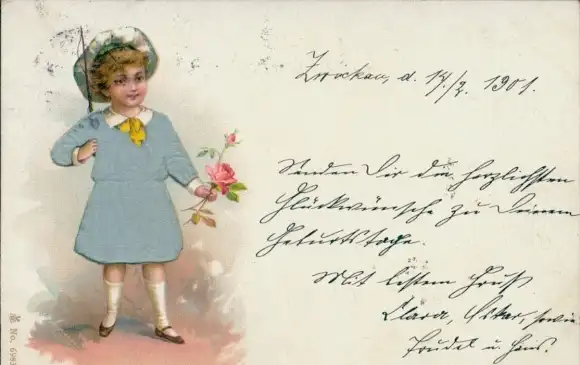 Zwickau, d. 14/7. 1901.
Senden Dir die herzlichsten
Glückwünsche zu Deinem
Geburtstage.
Mit bestem Gruß
Clara, Oskar, sowie
Trudel u. Hans.
No. 698